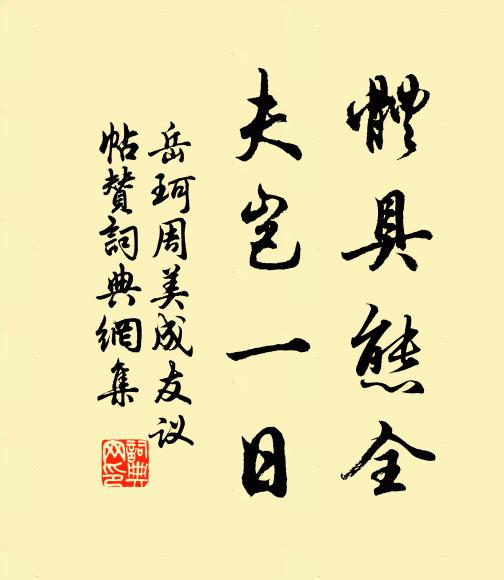 體具態全
夫豈一日
岳珂周美成友议
帖賛詞典網集
詞典
网印